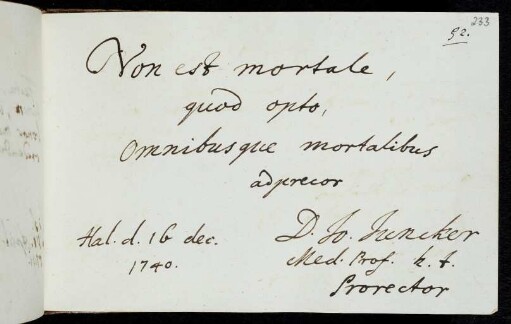 233
92.
Non est mortale,
quod opto,
omnibusque mortalibus
adprecor
Hal. d. 16 dec.
1740.
D. Jo. Juncker
Med. Prof. h. t.
Prorector